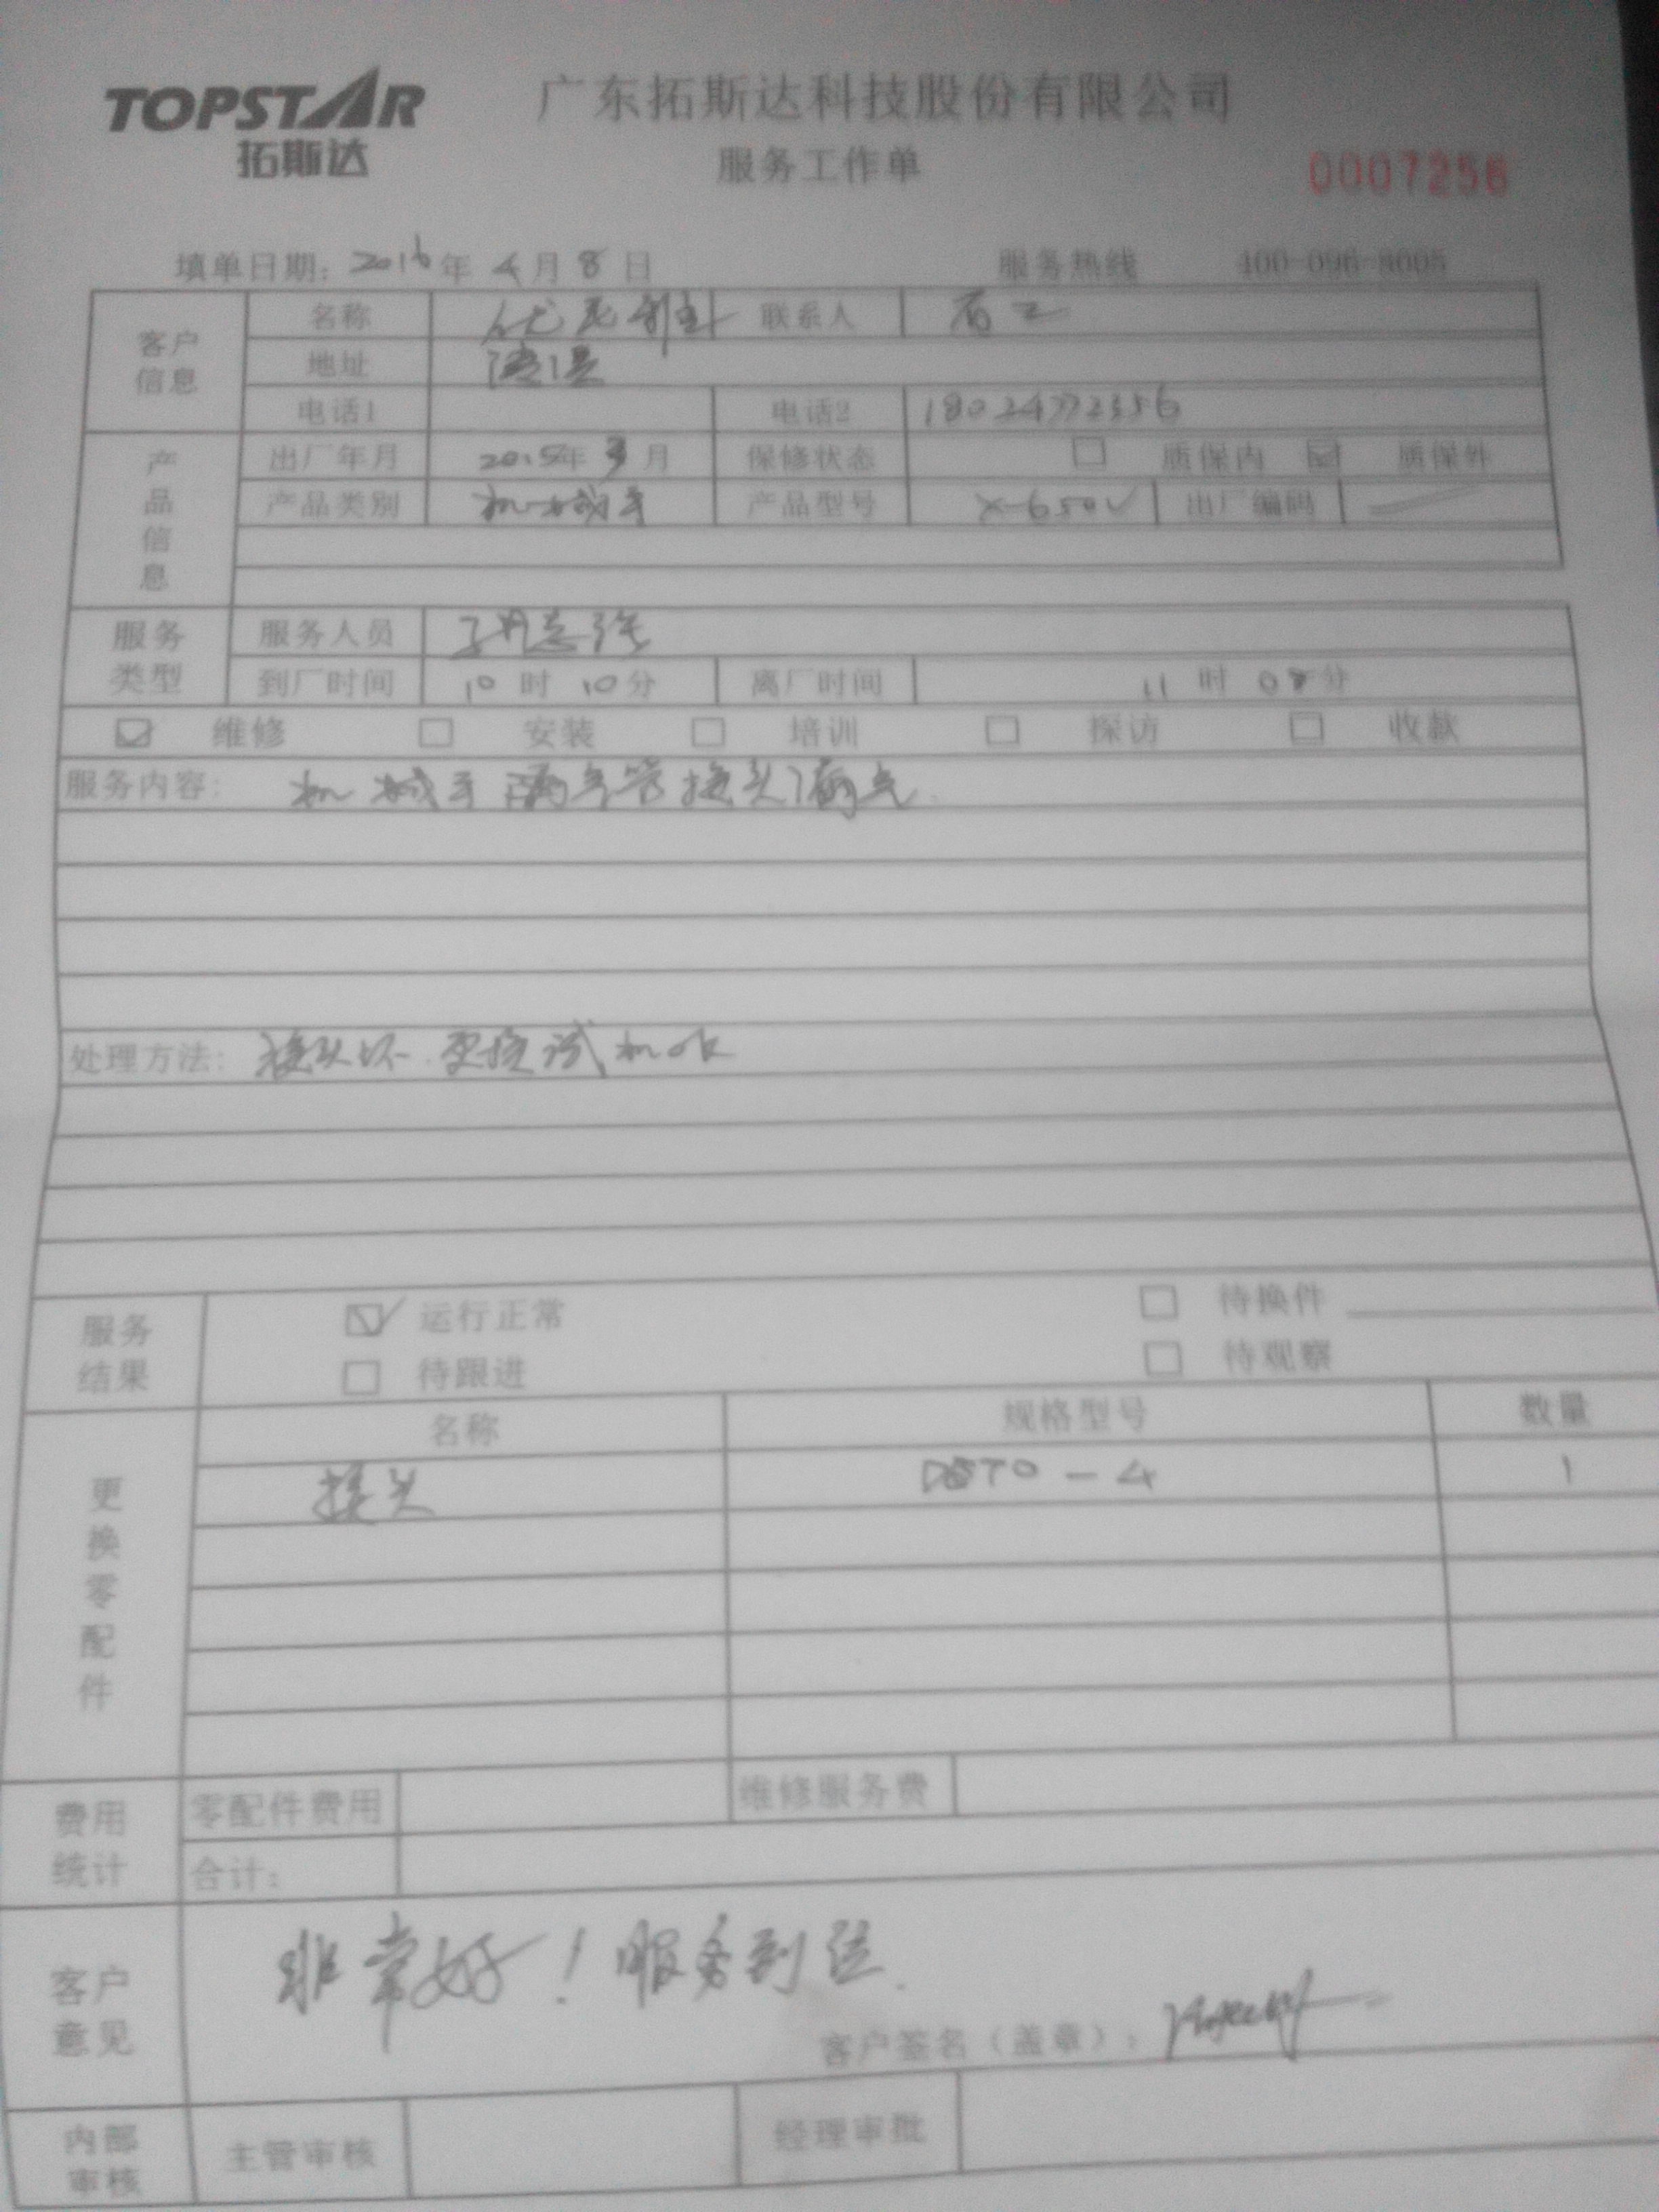 TOPSTAR
拓斯达
广东拓斯达科技股份有限公司
服务工作单
0007256
填单日期: 2016年 4月 8日 服务热线 400-096-8005
客户信息
名称 联系人
地址
电话1 电话2
产品信息
出厂年月 2015年 3月 保修状态 质保内 质保外
产品类别 机械手 产品型号 X-650V 出厂编码
服务类型
服务人员
到厂时间 10 时 10分 离厂时间 11 时 分
维修 安装 培训 探访 收款
服务内容: 机械手 气管接头漏气.
处理方法: 接头坏.更换试机ok
服务结果
运行正常 待换件
待跟进 待观察
更换零配件
名称 规格型号 数量
接头 1
费用统计
零配件费用 维修服务费
合计:
客户意见
非常好!服务到位.
客户签名(盖章):
内部审核
主管审核 经理审批